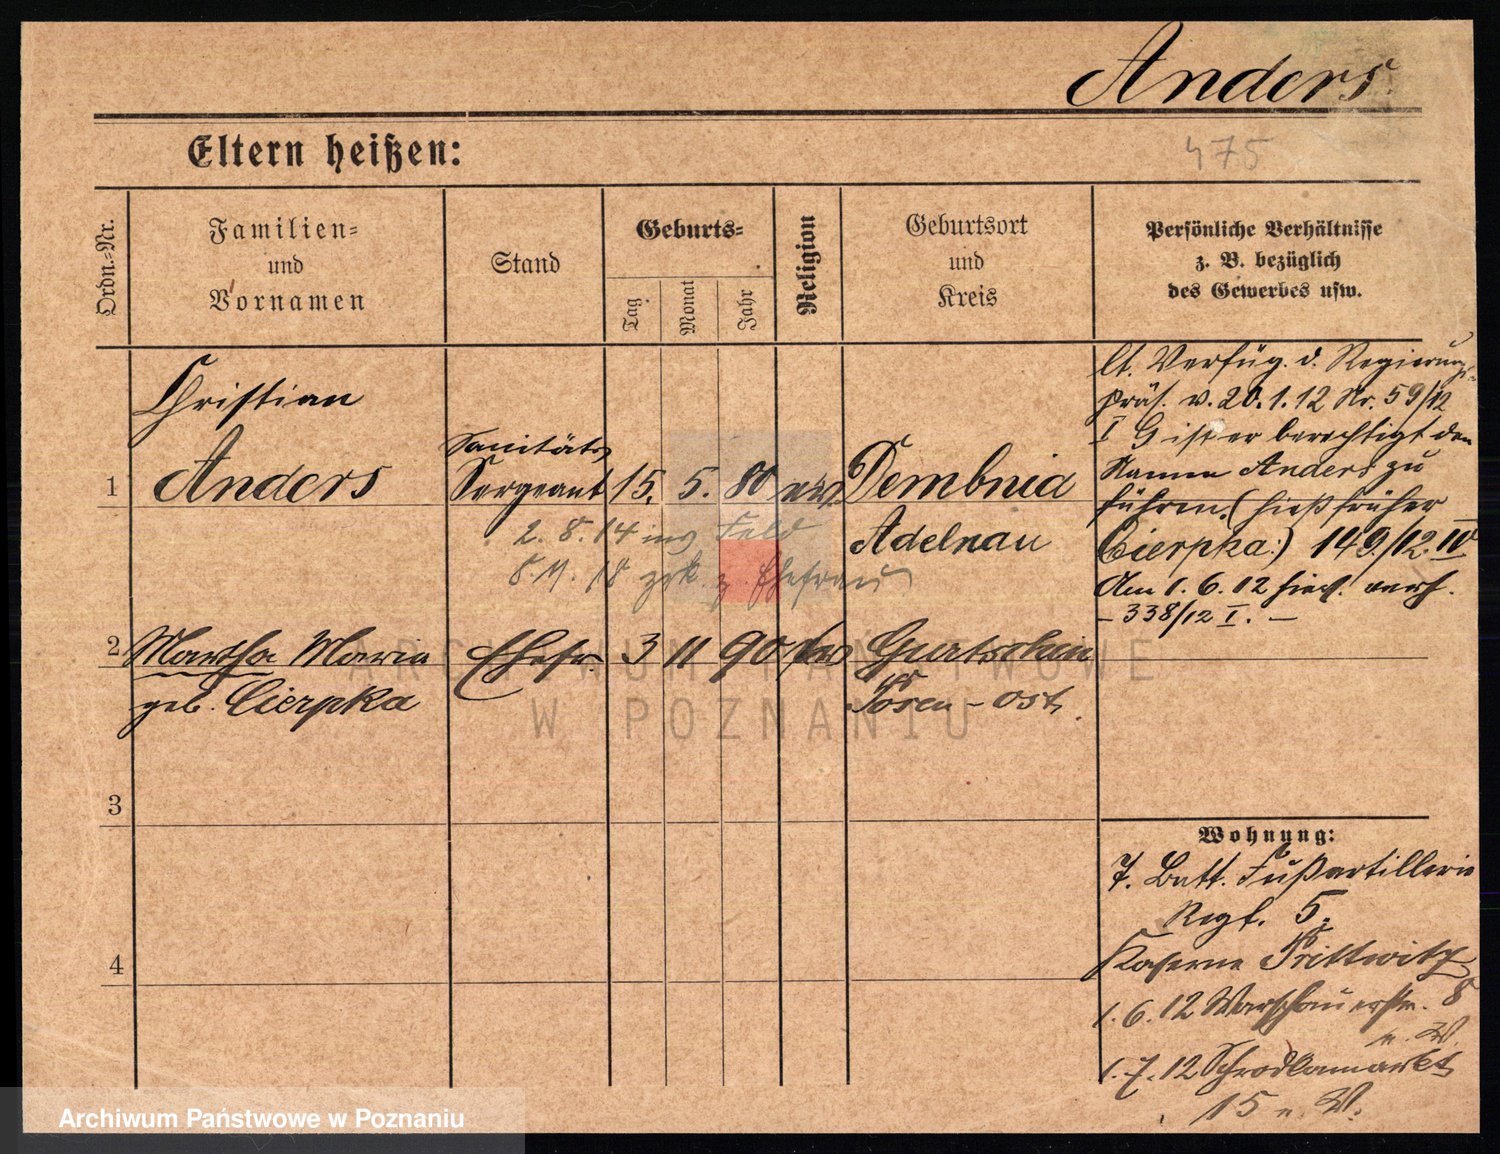 Anders.
Eltern heißen:
475
Ordn.=Nr.
Familien=
und
Vornamen
Stand
Geburts=
Tag
Monat
Jahr
Religion
Geburtsort
und
Kreis
Persönliche Verhältnisse
z. B. bezüglich
des Gewerbes usw.
Christian
1 Anders
Sanitäts
Sergeant 15. 5. 80 ev. Dembnia
Adelnau
2. 8. 14 ins Feld
8. 11. 18 zrk. z. Ehefrau
lt. Verfüg. d. Regierungs-
präs. v. 20.1.12 Nr. 59/12
I G ist er berechtigt den
Namen Anders zu
führen. (hieß früher
Cierpka:) 149./12.IV
Am 1. 6. 12 hier verh.
- 338/12 I. -
2 Martha Maria Ehefr. 3 11 90 ev Gurtschin
geb. Cierpka
Posen - Ost.
3
4
Wohnung:
7. Batt. Fußartillerie
Regt. 5.
Kaserne Prittwitz
1.6.12 Warschauerstr. 8
n. W.
1.7.12 Schrodkamarkt
15 n. W.
ARCHIWUM PAŃSTWOWE
W POZNANIU
Archiwum Państwowe w Poznaniu